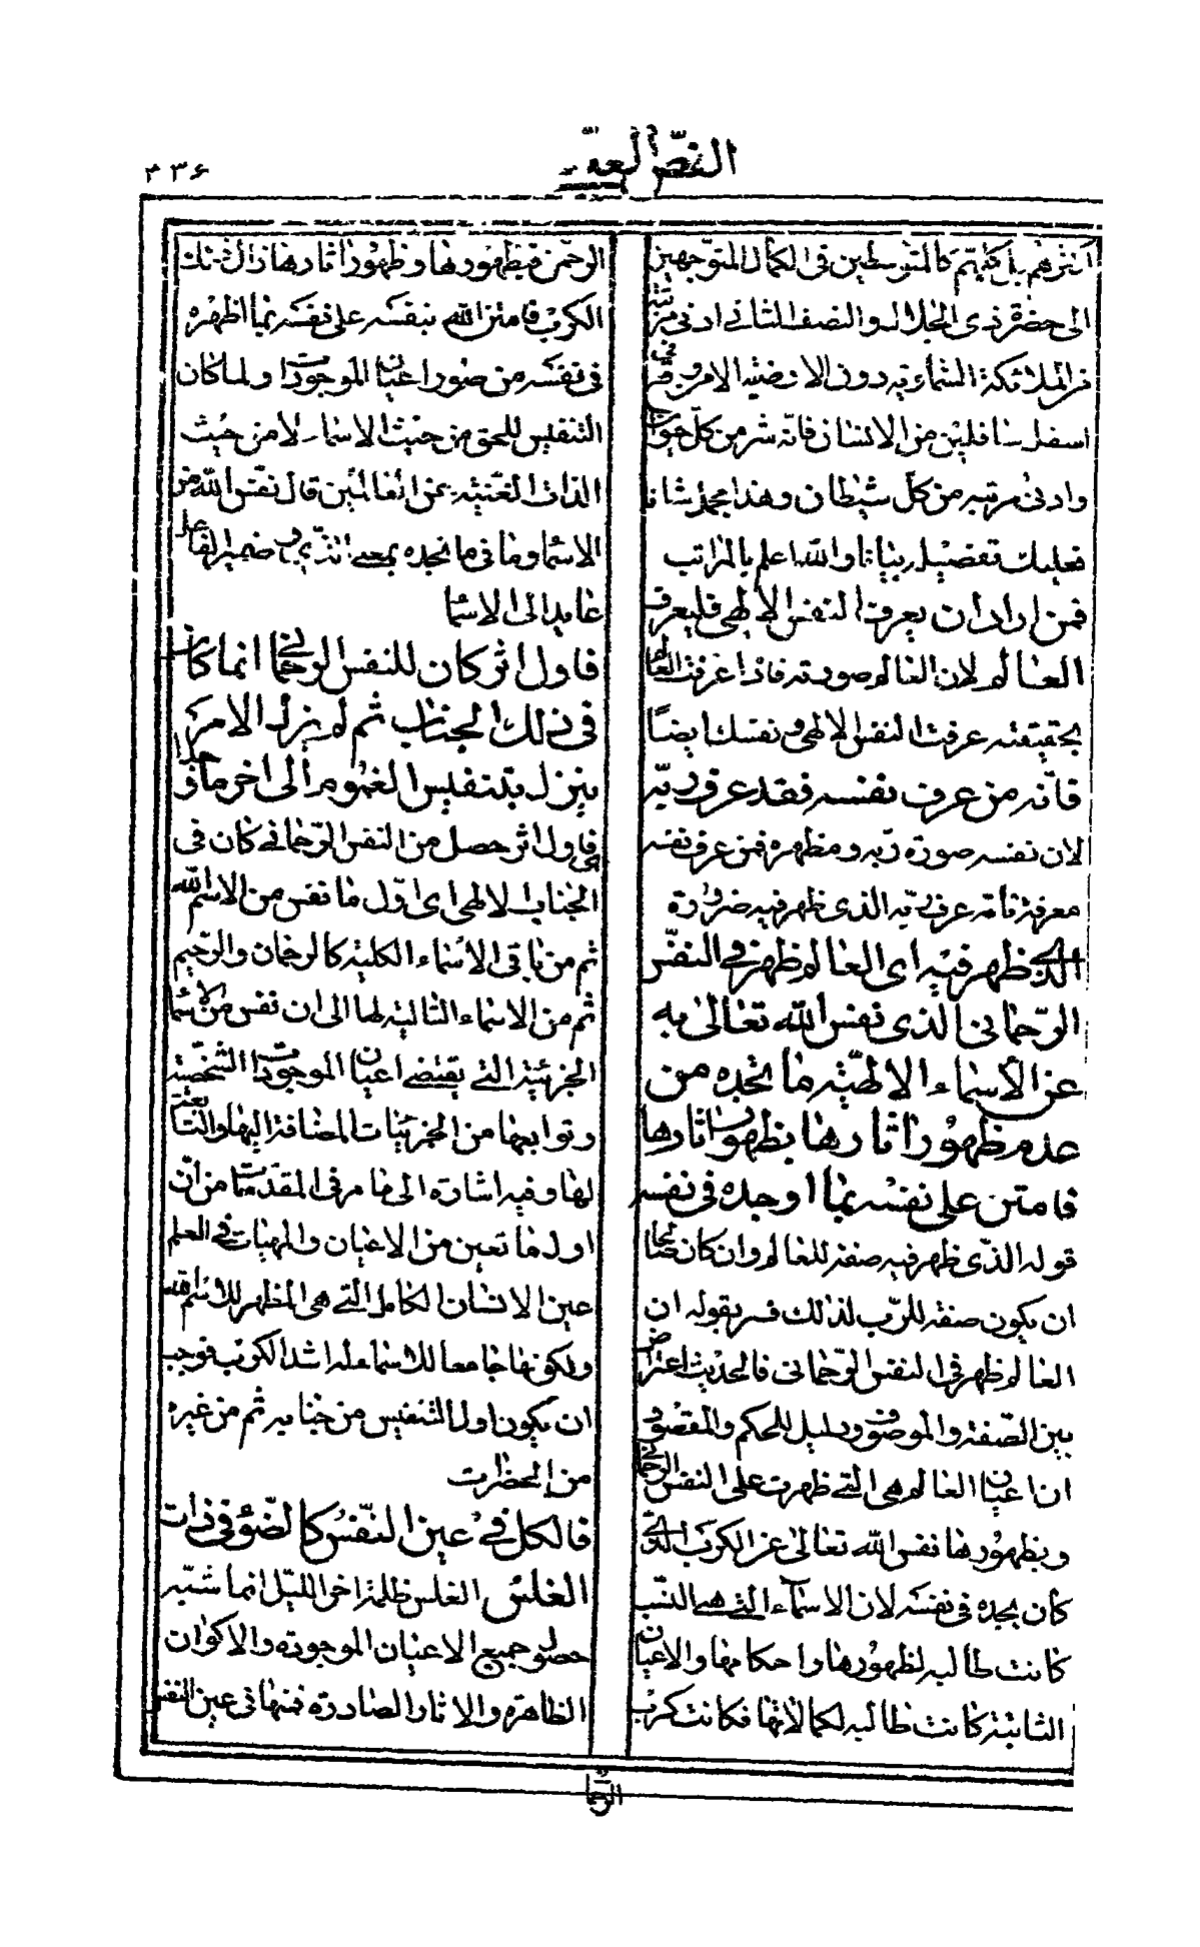 النص العيسوي
٣٣۶
اكثرهم باكليتهم كالمتوسطين في الكمال المتوجهين
الى حضرة ذي الجلال والنصف الثاني ادنى مرتبة
من الملائكة السماوية دون الارضية الامر وفي
اسفل سافلين من الانسان فانه شر من كل حيوان
وادنى مرتبه من كل شيطان وهذا مجمل شانه
فعليك تفصيله بيانا والله اعلم بالمراتب
فمن اراد ان يعرف النفس الالهي فليعرف
العالم لان العالم صورته فاذا عرفت العالم
بحقيقته عرفت النفس الالهي ونفسك ايضا
فانه من عرف نفسه فقد عرف ربه
لان نفسه صورة ربه ومظهره فمن عرف نفسه
معرفة تامة عرف ربه الذي ظهر فيه ضرورة
الذي ظهر فيه اى العالم ظهر في النفس
الرحماني الذي نفس الله تعالى به
عن الأسماء الالهيّة ما تجده من
عدم ظهور اثارها بظهور اثارها
فامتن على نفسه بما اوجده في نفسه
قوله الذي ظهر فيه صفة للعالم وان كان صالحا
ان يكون صفة للرب لذلك فسر بقوله ان
العالم ظهر في النفس الرحماني فالحديث اعتراض
بين الصفة والموصوف ودليل للحكم والمقصود
ان اعيان العالم هي التي ظهرت على النفس الرحماني
وبظهورها نفس الله تعالى عن الكرب الذي
كان يجده في نفسه لان الاسماء التي هي النسب
كانت طالبه لظهورها واحكامها والاعيان
الثابتة كانت طالبه لكمالاتها فكانت كرب
الرحمن فبظهورها وظهور اثارها زال ذلك
الكرب فامتن الله بنفسه على نفسه بما اظهره
في نفسه من صور اعيان الموجودات ولما كان
التنفيس للحق من حيث الاسماء لا من حيث
الذات الغنية عن العالمين قال نفس الله عن
الاسماء وما في ما تجده بمعنى الذي وضمير الفاعل
عايد الى الاسماء
فاول اثر كان للنفس الرحماني انما كان
في ذلك الجناب ثم لم يزل الامر
ينزل بتنفيس الغموم الى اخر ما وجد
فاول اثر حصل من النفس الرحماني كان في
الجناب الالهي اى اول ما نفس من الاسم الله
ثم من باقي الأسماء الكلية كالرحمان والرحيم
ثم من الاسماء التالية لها الى ان نفس من الاسماء
الجزئية التي يقتضي اعيان الموجودات الشخصية
وتوابعها من الجزئيات المضافة اليها والتابعة
لها وفيه اشارة الى ما مر في المقدمات من ان
اول ما تعين من الاعيان والمهيات في العلم
عين الانسان الكامل التي هي المظهر للاسم الله
ولكونها جامعا للاسماء له اشد الكرب فوجب
ان يكون اول التنفيس من جنابه ثم من غيره
من الحضرات
فالكل في عين النّفَس كالضوء في ذات
الغلس الغلس ظلمة اخر الليل انما شبّه
حصول جميع الاعيان الموجوده والاكوان
الظاهرة والاثار الصادرة منها في عين النفس
الرحما